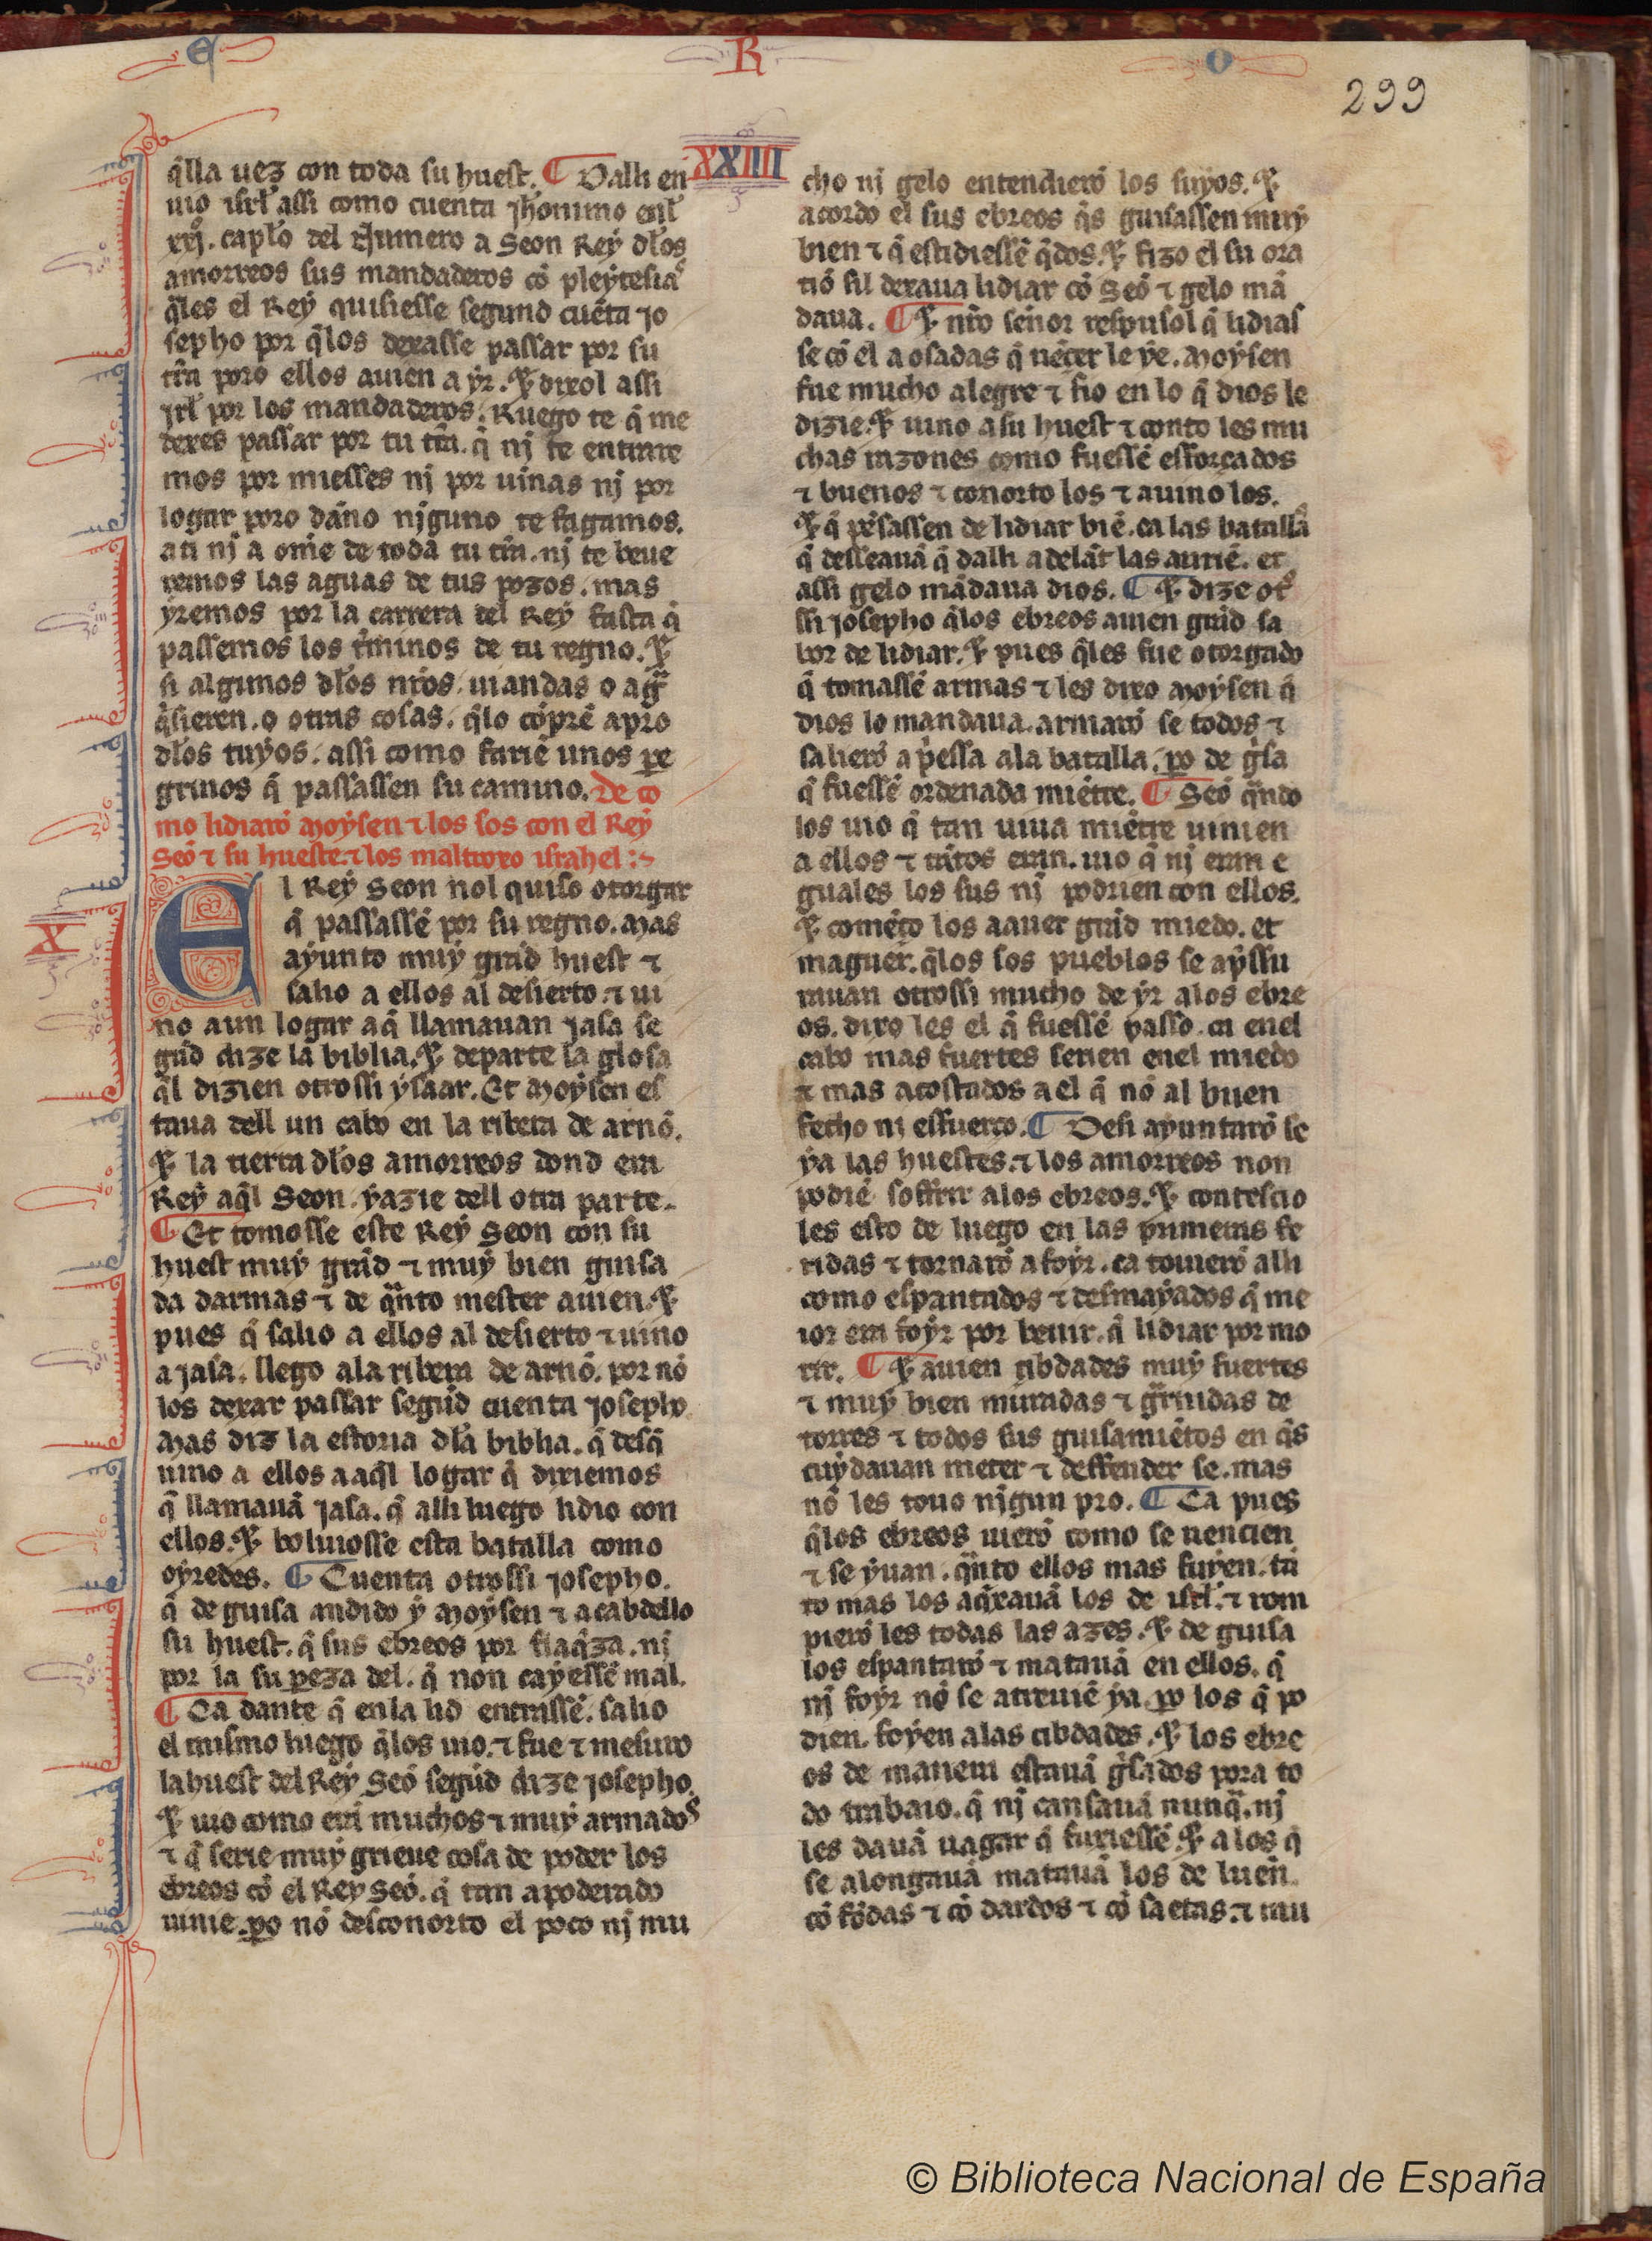 E R O
299
XXIIII
q̃lla uez con toda su huest. ¶ Dalli en
uio isrł assi como cuenta jheronimo enł
xxj. caplo del Numero a Seon Rey dłos
amorreos sus mandaderos cõ pleytesias
q̃les el Rey quisiesse segund cuẽta jo
sepho por q̃los dexasse passar por su
tr̃ra poro ellos auien a yr. ⁊ dixol assi
jsrł por los mandaderos. Ruego te q̃ me
dexes passar por tu tr̃ra. q̃ nj te entrare
mos por miesses nj por uinas nj por
logar poro dãno njguno te fagamos.
ati nj a om̃e de toda tu tr̃ra. nj te beue
remos las aguas de tus pozos. mas
yremos por la carrera del Rey fasta q̃
passemos los t̃minos de tu regno. ⁊
si algunos dłos nr̃os uiandas o agua
q̃sieren. o otras cosas. q̃lo cõprẽ apro
dłos tuyos. assi como fariẽ unos pe
grinos q̃ passassen su camino. De co
mo lidiarõ Moysen ⁊ los sos con el Rey
Seõ ⁊ su hueste. ⁊ los maltroxo israhel :~
XI
El Rey Seon nol quiso otorgar
q̃ passassẽ por su regno. Mas
ayunto muy grãd huest ⁊
salio a ellos al desierto. ⁊ ui
no aun logar aq̃ llamauan jasa se
gũd dize la biblia. ⁊ departe la glosa
q̃l dizien otrossi ysaar. Et Moysen es
taua dell un cabo en la ribera de arnõ.
⁊ la tierra dłos amorreos dond era
Rey aq̃l Seon. yazie dell otra parte.
¶ Et tomosse este Rey Seon con su
huest muy grãd ⁊ muy bien guisa
da darmas ⁊ de q̃nto mester auien. ⁊
pues q̃ salio a ellos al desierto ⁊ uino
a jasa. llego ala ribera de arnõ. por nõ
los dexar passar segũd cuenta josepho.
Mas diz la estoria dła biblia. q̃ desq̃
uino a ellos a aq̃l logar q̃ dixiemos
q̃ llamauã jasa. q̃ alli luego lidio con
ellos. ⁊ boluiosse esta batalla como
oyredes. ¶ Cuenta otrossi josepho.
q̃ de guisa andido y Moysen ⁊ acabdello
su huest. q̃ sus ebreos por flaq̃za. nj
por la su peza del. q̃ non cayessẽ mal.
¶ Ca dante q̃ enla lid entrassẽ. salio
el mismo luego q̃los uio. ⁊ fue ⁊ mesuro
la huest del Rey Seõ segũd dize josepho.
⁊ uio como erã muchos ⁊ muy armados
⁊ q̃ serie muy grieue cosa de poder los
ebreos cõ el Rey Seõ. q̃ tan apoderado
uinie. po nõ desconorto el poco nj mu
cho nj gelo entendierõ los suyos. ⁊
acordo el sus ebreos q̃s guisassen muy
bien ⁊ q̃ estidiessẽ q̃dos. ⁊ fizo el su ora
tiõ sil dexaua lidiar cõ Seõ ⁊ gelo mã
daua. ¶ ⁊ nr̃o señor respusol q̃ lidias
se cõ el a osadas q̃ uẽcer le ye. Moysen
fue mucho alegre ⁊ fio en lo q̃ dios le
dizie. ⁊ uino a su huest ⁊ conto les mu
chas razones como fuessẽ esforçados
⁊ buenos ⁊ conorto los ⁊ auino los.
⁊ q̃ pẽsassen de lidiar biẽ. ca las batallas
q̃ desseauã q̃ dalli adelãt las aurıẽ. et
assi gelo mãdaua dios. ¶ ⁊ dize otro
ssi josepho q̃los ebreos auien grãd sa
bor de lidiar. ⁊ pues q̃les fue otorgado
q̃ tomassẽ armas ⁊ les dixo Moysen q̃
dios lo mandaua. armarõ se todos ⁊
salierõ a p̃essa ala batalla. po de g̃sa
q̃ fuessẽ ordenada miẽtre. ¶ Seõ q̃ndo
los uio q̃ tan uiua miẽtre uinien
a ellos ⁊ tãtos eran. uio q̃ nj eran e
guales los sus nj podrien con ellos.
⁊ comẽço los a auer grãd miedo. et
maguer. q̃los sos pueblos se ap̃ssu
rauan otrossi mucho de yr alos ebre
os. dixo les el q̃ fuessẽ passo. ca enel
cabo mas fuertes serien enel miedo
⁊ mas acostados a el q̃ nõ al buen
fecho ni esfuerço. ¶ Desi ayuntarõ se
ya las huestes. ⁊ los amorreos non
podiẽ soffrir alos ebreos. ⁊ contescio
les esto de luego en las primeras fe
ridas ⁊ tornarõ a foyr. ca touierõ alli
como espantados ⁊ desmayados q̃ me
ior era foyr por beuir. q̃ lidiar por mo
rir. ¶ ⁊ auien cibdades muy fuertes
⁊ muy bien muradas ⁊ g̃rnidas de
torres ⁊ todos sus guisamiẽtos en q̃s
cuydauan meter ⁊ deffender se. mas
nõ les touo njgun pro. ¶ Ca pues
q̃los ebreos uierõ como se uencien
⁊ se yuan. q̃nto ellos mas fuyen. tã
to mas los aq̃xauã los de isrł. ⁊ rom
pierõ les todas las azes. ⁊ de guisa
los espantarõ ⁊ matauã en ellos. q̃
nj foyr nõ se atreuiẽ ya. po los q̃ po
dien. foyen alas cibdades. ⁊ los ebre
os de manera estauã g̃sados pora to
do trabaio. q̃ nj cansauã nunq̃. nj
les dauã uagar q̃ furiessẽ. ⁊ a los q̃
se alongauã matauã los de lueñ.
cõ fõdas ⁊ cõ dardos ⁊ cõ saetas. ⁊ mu
© Biblioteca Nacional de España